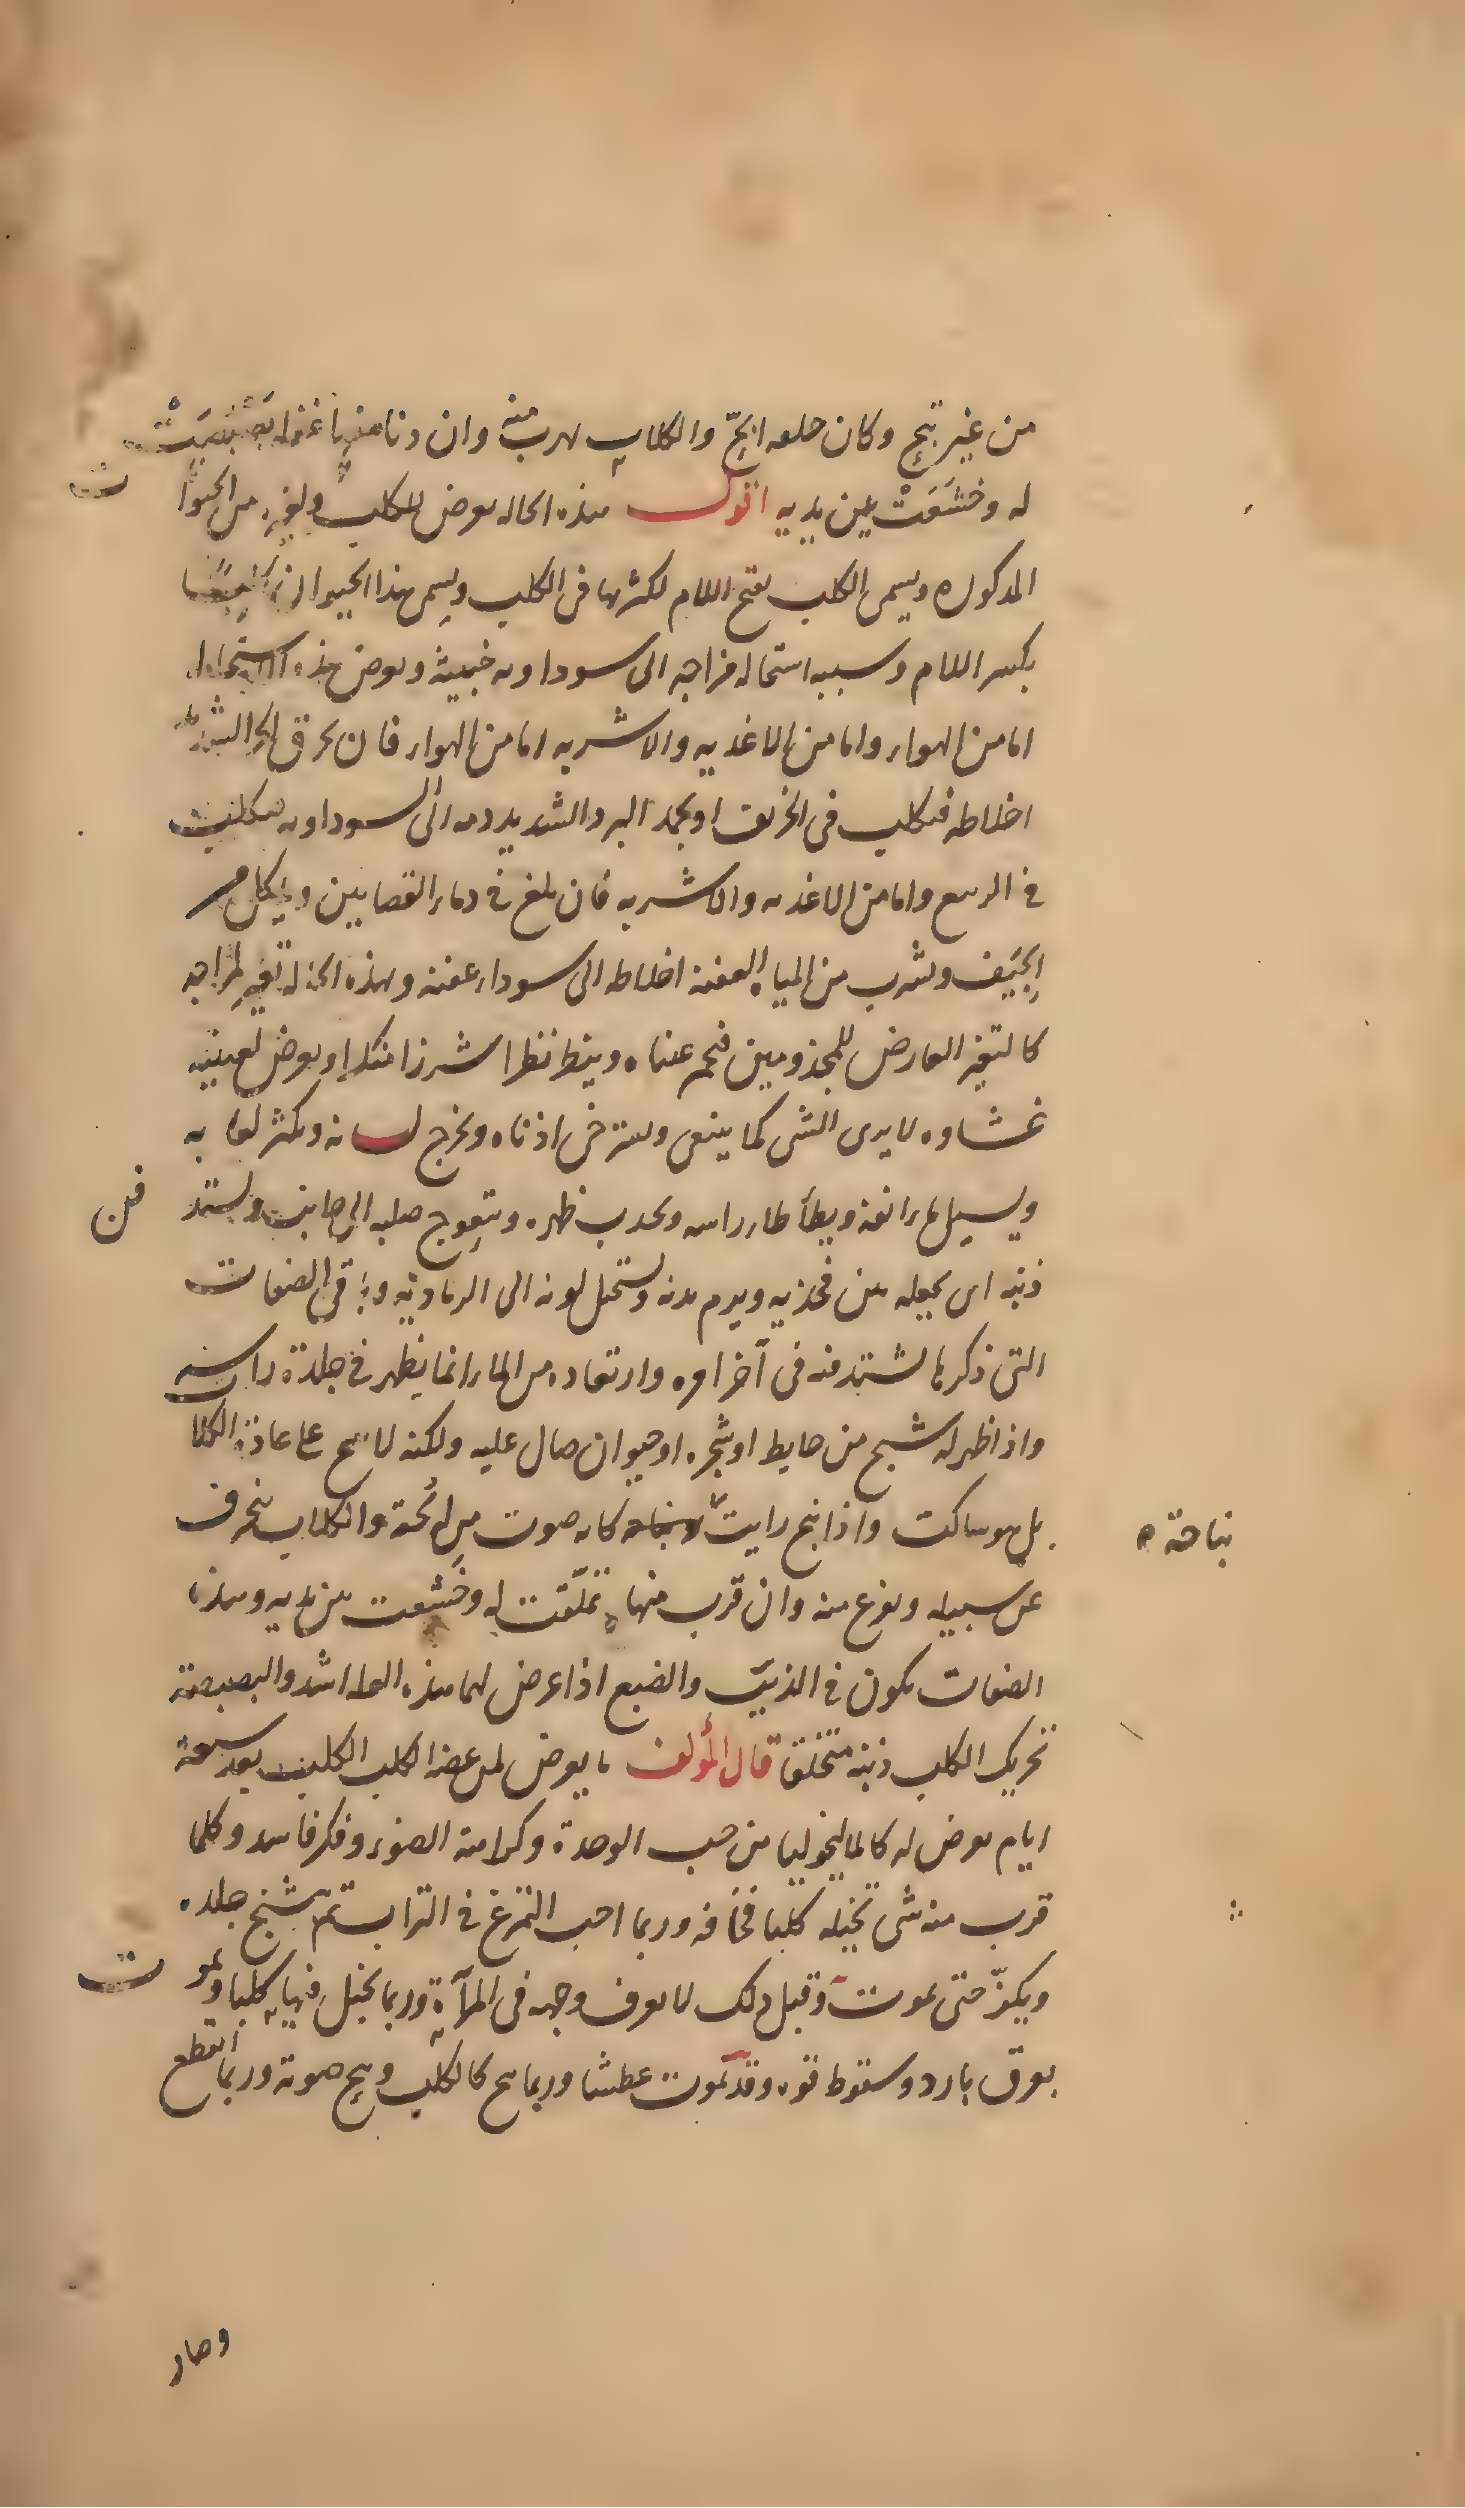 من غير نبح وكان حلقه ابحّ والكلاب يهرب منه وان دنا منها غفلة بَصْبَصَتْ
له وخشَعَتْ بين يديه اقول هذه الحاله يعرض للكلب ولغيره من الحيوانات
المذكوره ويسمى الكلَب بفتح اللام لكثرتها فى الكلب ويسمى هذا الحيوان كلِبًا
بكسر اللام وسببه استحاله مزاجه الى سوداويه خبيثة ويعرض هذه الاستحاله
اما من الهواء واما من الاغذيه والاشربه اما من الهواء فان يحرق الحر الشديد
اخلاطه فيكلب فى الخريف او يجمد البرد الشديد دمه الى السوداويه فيكلب
فى الربيع واما من الاغذيه والاشربه فان يلغ فى دماء القصابين وياكل من
الجِيَف ويشرب من المياه العفنه اخلاطه الى سوداء عفنه وهذه الحاله تغير لمزاجه
كالتغير العارض للمجذومين فيحمر عيناه وينظر نظرا شزرا منكرا ويعرض لعينيه
غشاوه لا يرى الشى كما ينبغى ويسترخى اذناه ويخرج لسانه ويكثر لعابه
ويسيل ماء انفه ويطأطاء راسه ويحدب ظهره ويتعوج صلبه الى جانب ويستدفن
ذنبه اى يجعله بين فخذيه ويرم بدنه ويستحيل لونه الى الرماديه وباقى الصفات
التى ذكرها يشتد منه فى آخر امره وارتعاده من الماء انما يظهر فى جلدة راسه
واذا ظهر له شبح من حايط او شجره او حيوان صال عليه ولكنه لا ينبح على عادة الكلاب
بل هو ساكت واذا نبح رايت نباحه كانه صوت من به بُحة والكلاب ينحرف
نباحة ه
عن سبيله ويفزع منه وان قرب منها تملّقت له وخشعت بين يديه وهذه
الصفات يكون فى الذيب والضبع اذا عرض لهما هذه العله اشد والبصبصة
تحريك الكلب ذنبه متملقا قال المؤلف ما يعرض لمن عضه الكلب الكلب بعد سبعة
ايام يعرض له كالماليخوليا من حب الوحدة وكراهة الضوء وفكر فاسد وكلما
قرب منه شى تخيله كلبا فخافه وربما احب التمرغ فى التراب ثم يتشنج جلده
ويكزّ حتى يموت وقبل ذلك لا يعرف وجهه فى المرآة وربما تخيل فيها كلبا ويموت
بعرق بارد وسقوط قوه وقد يموت عطشا وربما نبح كالكلب وبح صوته وربما انقطع
وصار